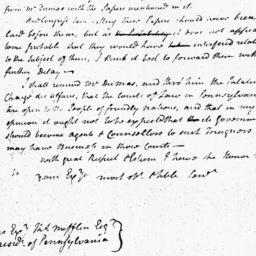 from Mr. Dumas with the Papers mentioned in it.
these Papers should have been
laid before them, but as it does not appear
some probable that they would have interfered relat
to the Subject of them, I think it best to forward them with
further Delay —
I shall remind Mr Dumas, and thro' him the Palatin
Chargé des affairs, that the Courts of Law in Pennsylvania
are open to the People of friendly nations, and that in my
opinion it ought not to be expected that governm
should become agents & Counsellors to such Foreigners
may have Business in those Courts —
with great Respect & Esteem I have the Honor
Your Exy's most ob. & hble Serv
Thos Mifflin Esqr
Presidt. of Pennsylvania